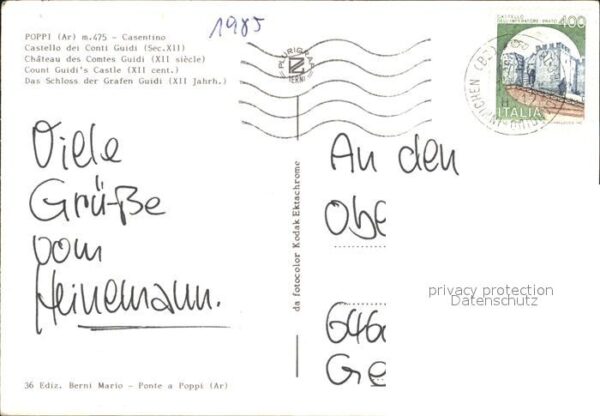 1985
POPPI (Ar) m.475 - Casentino
Castello dei Conti Guidi (Sec.XII)
Château des Comtes Guidi (XII siècle)
Count Guidi's Castle (XII cent.)
Das Schloss der Grafen Guidi (XII Jahrh.)
PLURIGRAF
TERNI
CASTELLO
DELL'IMPERATORE - PRATO
400
ITALIA
Viele
Grüße
vom
Heinemann.
da fotocolor Kodak Ektachrome
An den
Obe
646
Ge
privacy protection
Datenschutz
36 Ediz. Berni Mario - Ponte a Poppi (Ar)